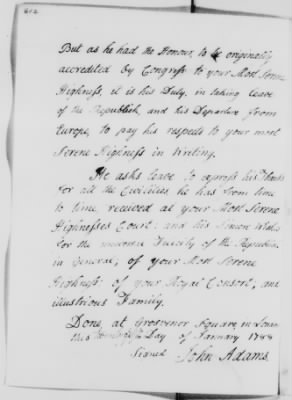 612
But as he had the Honour, to be originally
accredited by Congress to your Most Serene
Highness, it is his Duty, in taking leave
of the Republick, and his Departure from
Europe, to pay his respects to your most
Serene Highness in Writing.
He asks leave to express his Thanks
for all the Civilities he has from time
to time, received at your Most Serene
Highnesses Court; and his Sincere Wishes
for the universal Felicity of the Republick
in General; of your Most Serene
Highness; of your Royal Consort, and
illustrious Family.
Done, at Grosvenor Square, in London
this Day of January 1788
Signed John Adams.